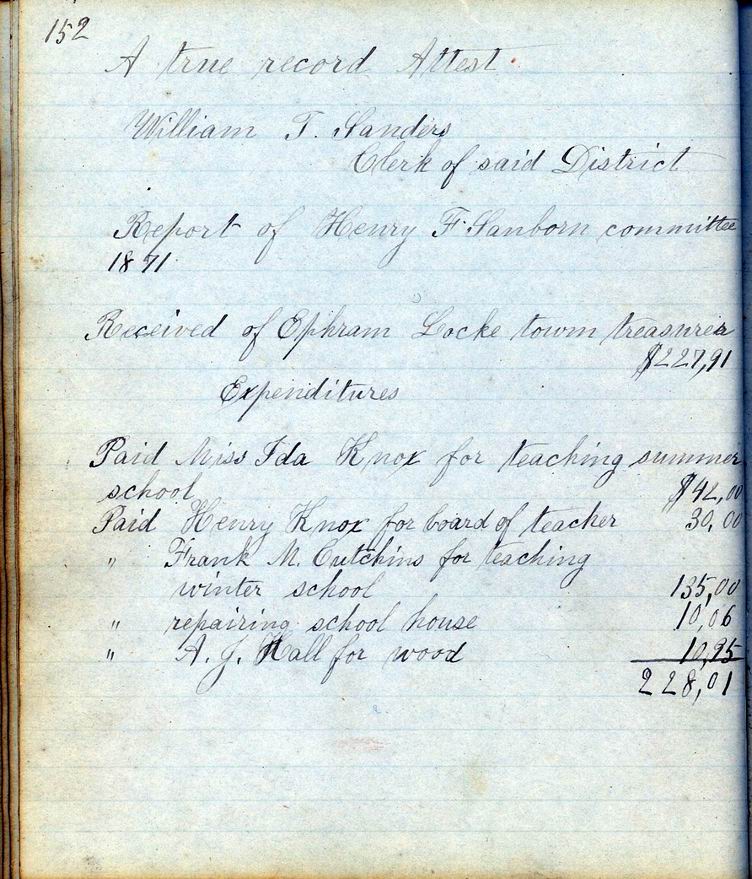 152
A true record Attest
William T. Sanders
Clerk of said District
Report of Henry F. Sanborn committee
1871.
Received of Ephram Locke town treasurer
$227,91
Expenditures
Paid Miss Ida Knox for teaching summer
school $42,00
Paid Henry Knox for board of teacher 30,00
" Frank M. Cutchins for teaching
winter school 135,00
" repairing school house 10,06
" A. J. Hall for wood 10,95
228,01